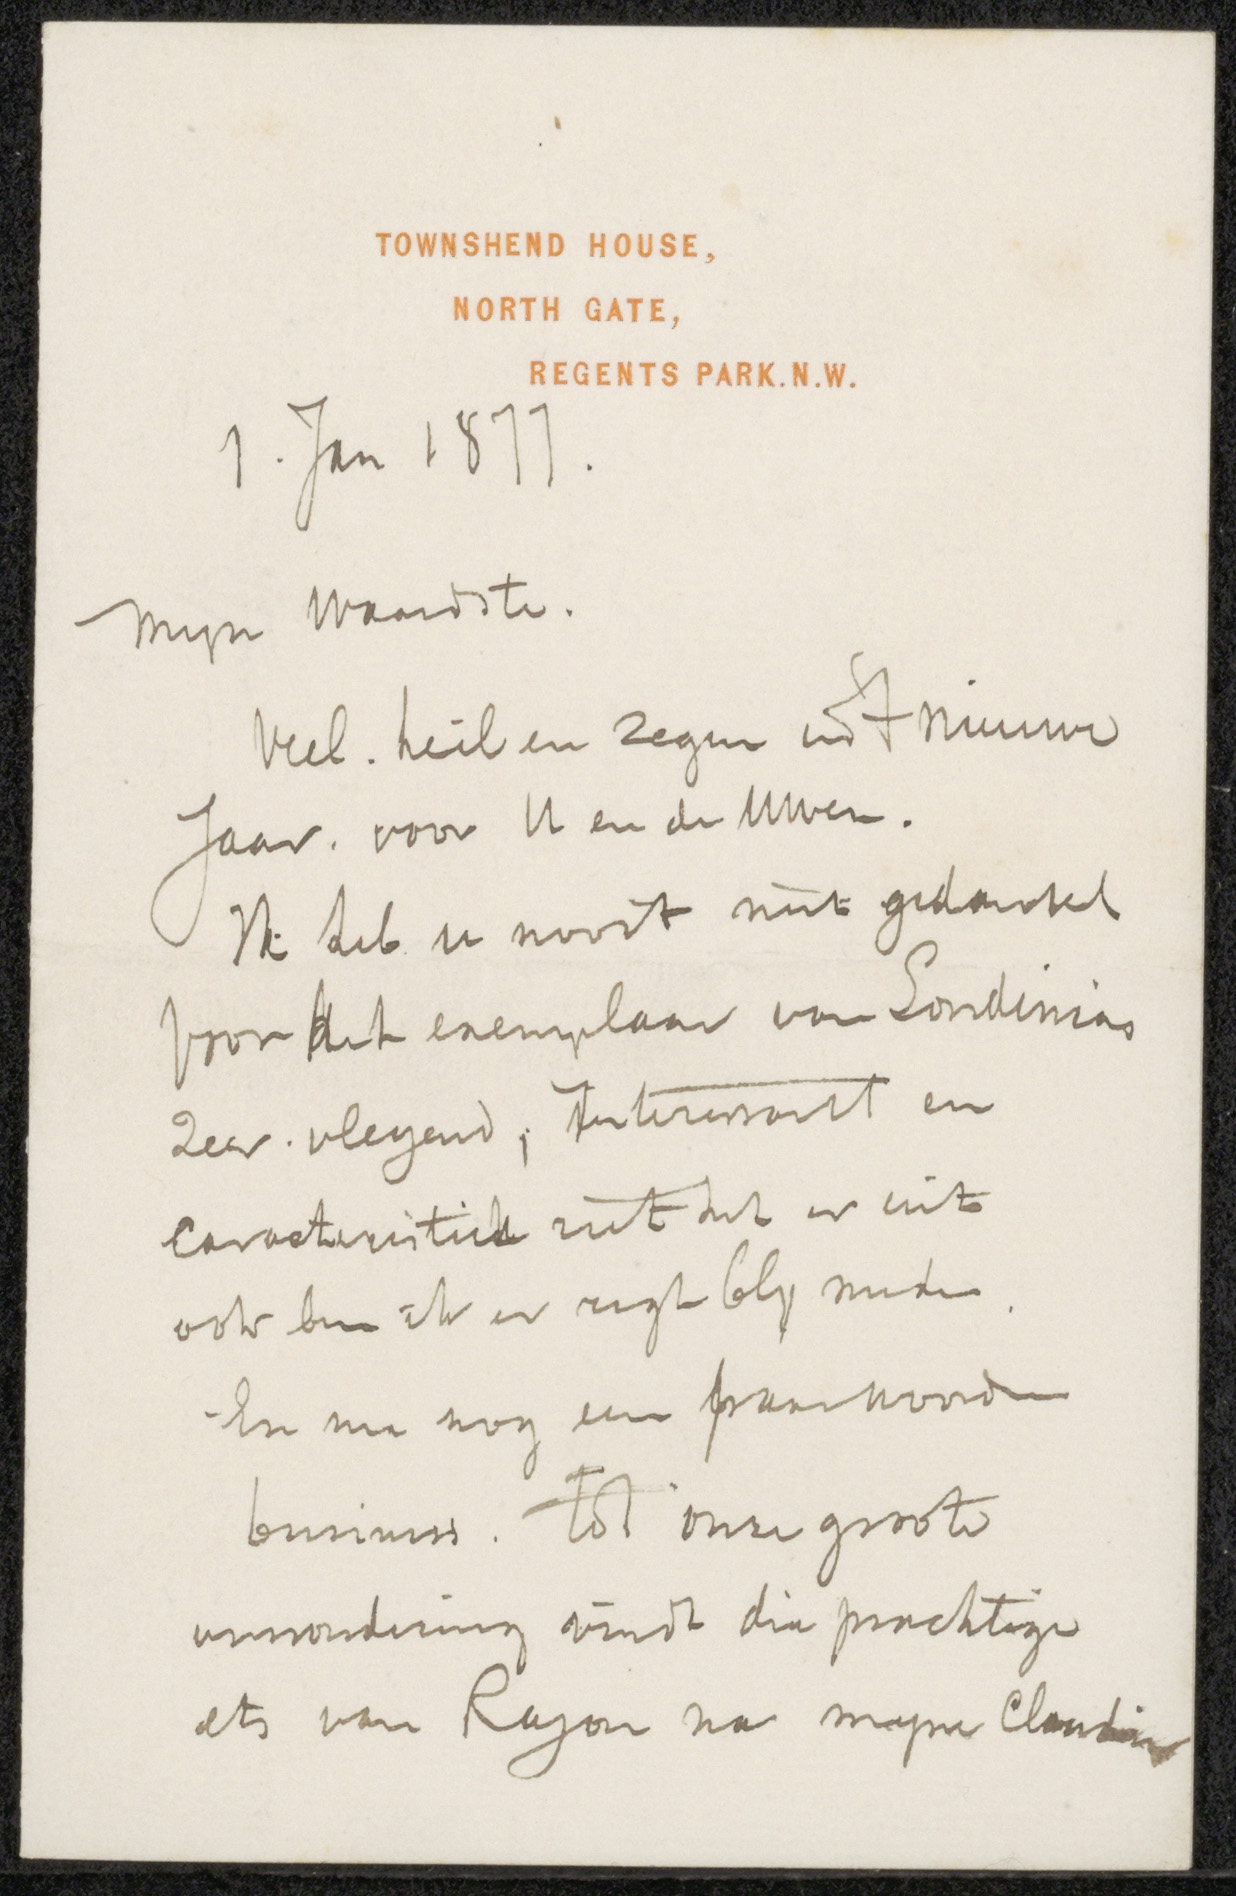 TOWNSHEND HOUSE,
NORTH GATE,
REGENTS PARK. N.W.
1. Jan 1877.
Mijn Waardste.
Veel. heil en zegen in 't nieuwe
Jaar. voor U en de Uwen.
Ik heb u nooit niet gedankt
voor het exemplaar van Londinias
Zeer. vleyend, Interessant en
caracteristiek ziet het er uit
ook ben ik er regt bly mede.
En nu nog een paar woorden
business. Tot onze groote
verwondering vindt die prachtige
ets van Rajon na mijne Claudius